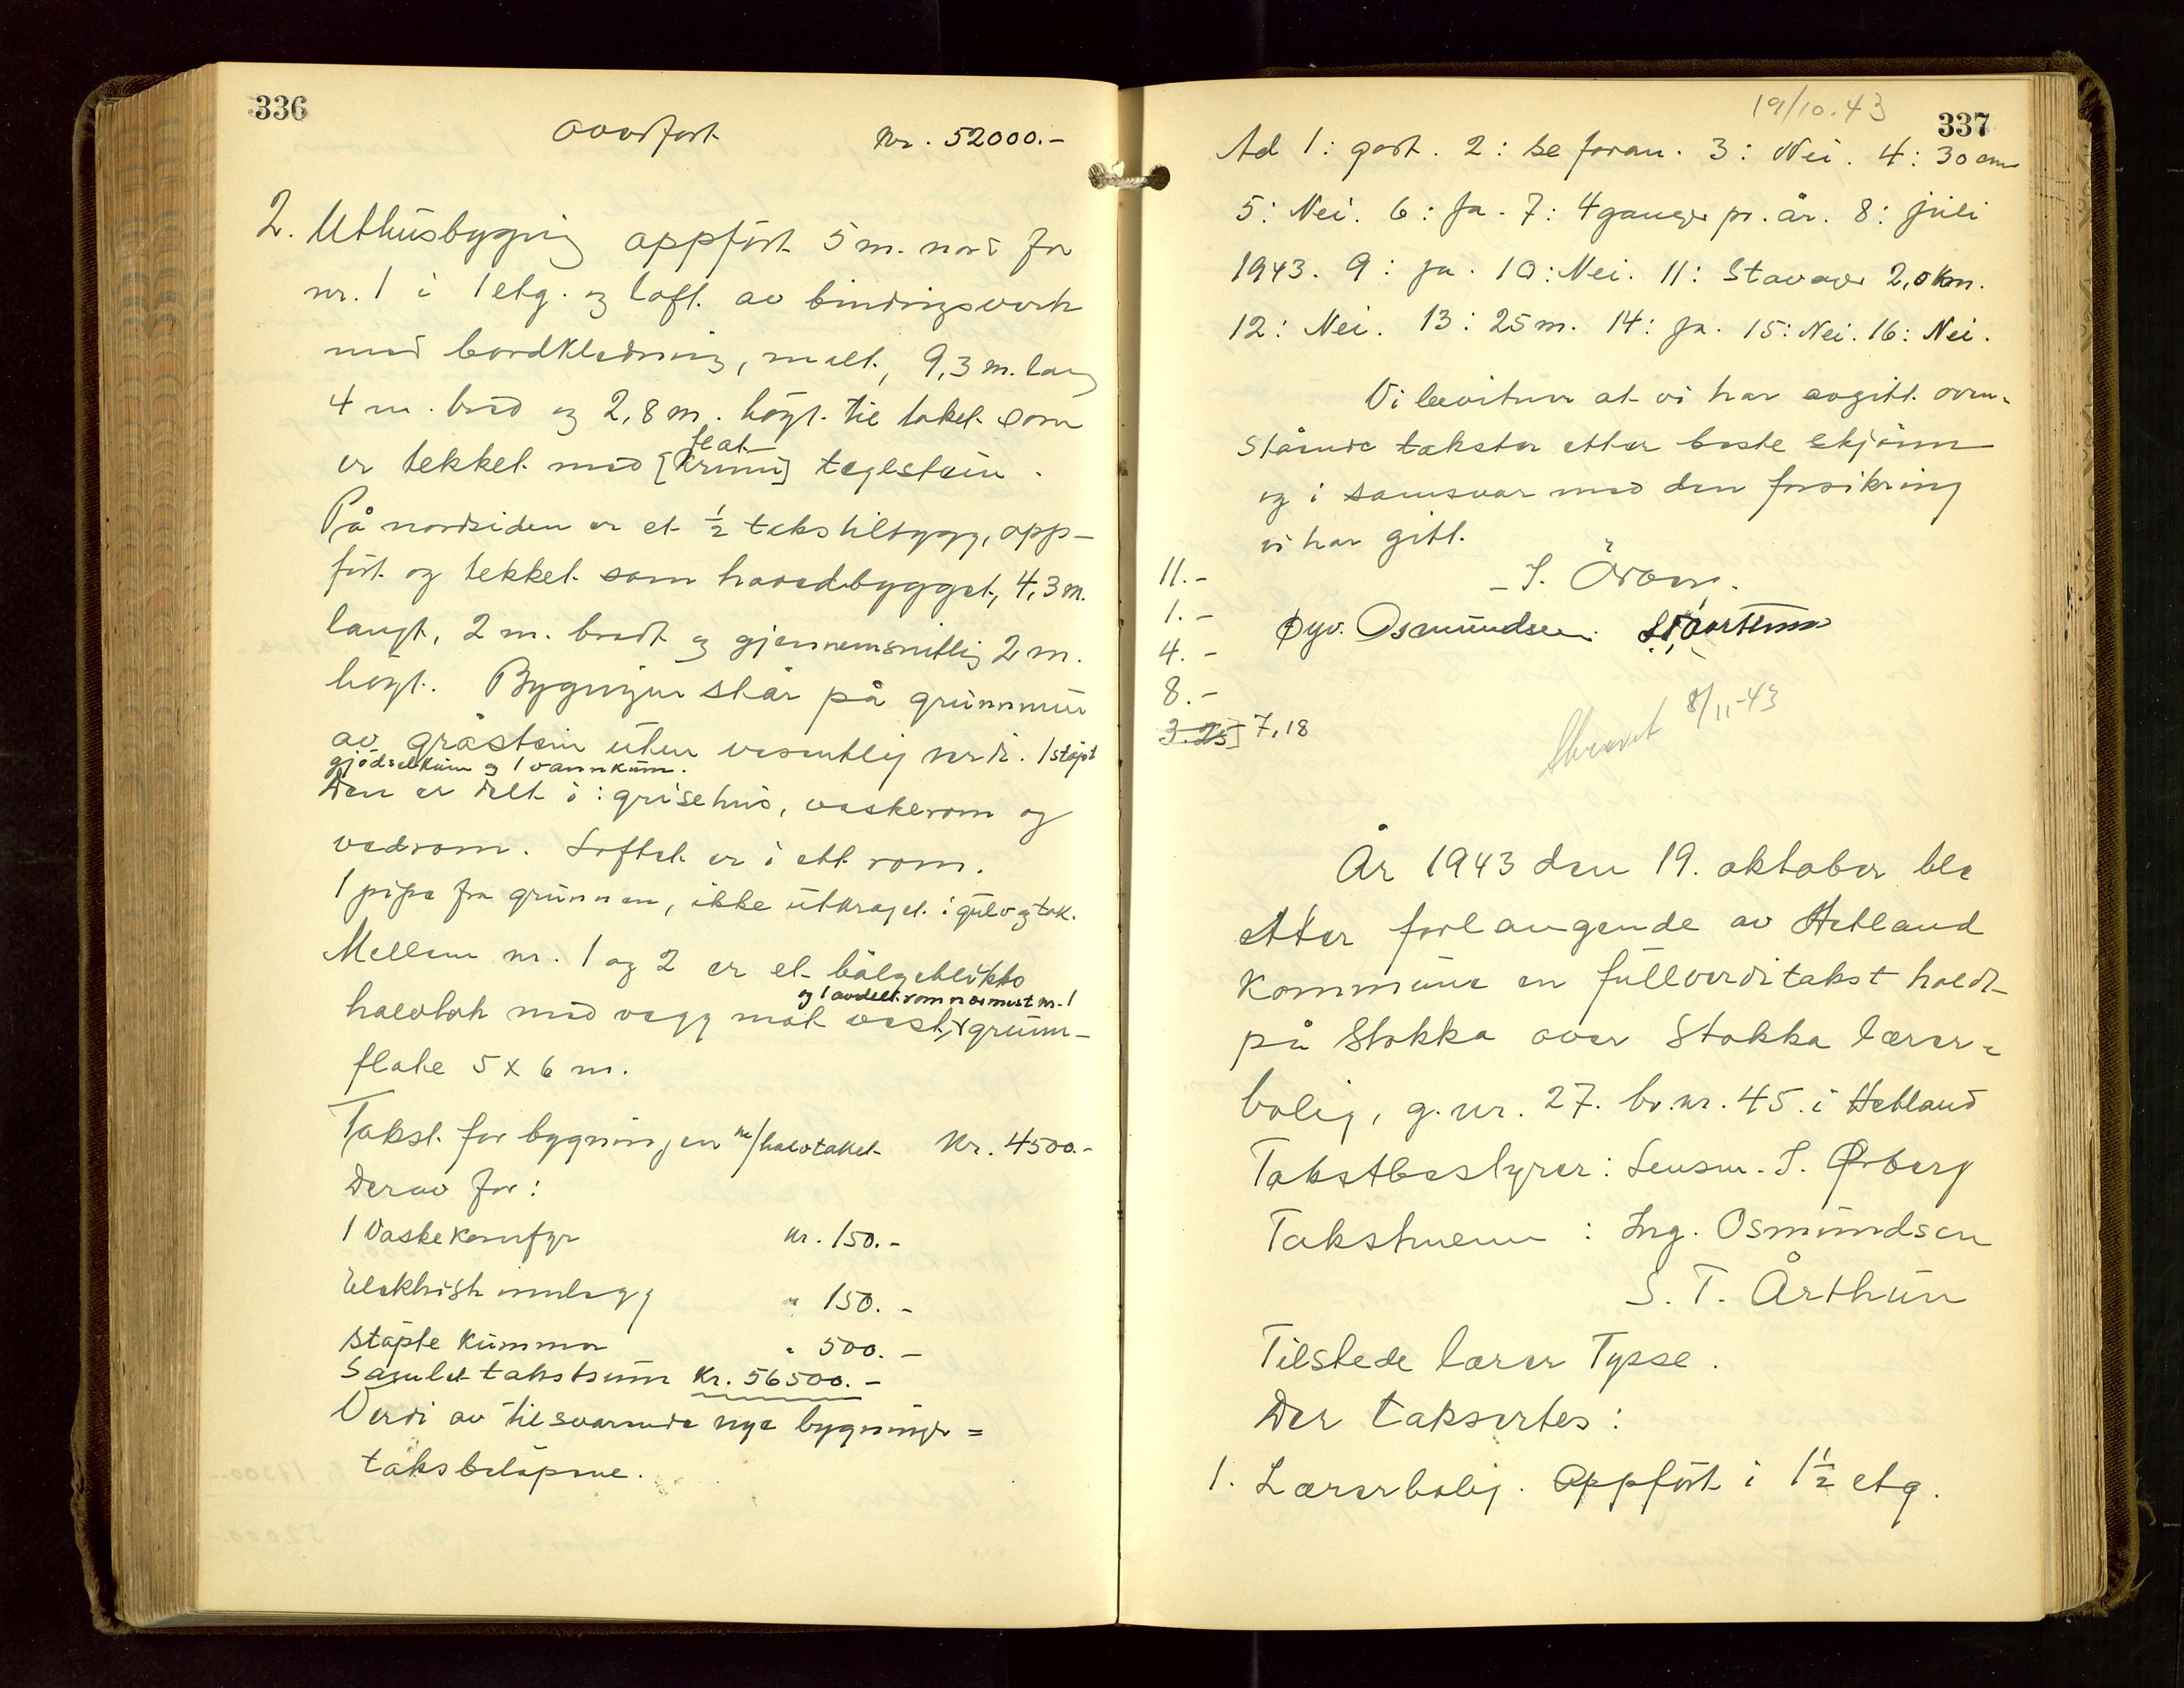 336
overført kr. 52000.-
2. Uthusbygning oppført 5 m. nord for
nr. 1 i 1 etg. og loft av bindingsverk
med bordkledning, malt, 9,3 m. lang
4 m. bred og 2,8 m. högt til taket som
flat
er tekket med [krum] teglstein.
På nordsiden er et ½ takstilbygg, opp-
ført og tekket som hovedbygget, 4,3 m.
langt, 2 m. bredt og gjennemsnitlig 2 m.
högt. Bygningen står på grunnmur
av gråstein uten vesentlig verdi. 1 støpt
gjødselkum og 1 vannkum.
Den er delt i: grisehus, vaskerom og
vedrom. Loftet er i ett rom.
1 pipe fra grunnen, ikke utkraget i gulv og tak.
Mellem nr. 1 og 2 er et bølgeblikks
og 1 avdelt rom nærmest nr. 1
halvtak med vegg mot vest, grunn-
flate 5 x 6 m.
Takst for bygningen m/halvtaket kr. 4500.-
Derav for:
1 Vaskekomfyr kr. 150.-
Elektrisk innlegg " 150.-
støpte kummer " 500.-
Samlet takstsum kr. 56500.-
Verdi av tilsvarende nye bygninger =
taksbeløpene.
19/10.43
337
Ad 1: godt. 2: se foran. 3: Nei. 4: 30 cm
5: Nei. 6: Ja. 7: 4 ganger pr. år. 8: juli
1943. 9: ja. 10: Nei. 11: Stavanger 2,0 km.
12: Nei. 13: 25 m. 14: Ja. 15: Nei. 16: Nei.
Vi bevitner at vi har avgitt oven-
stående takster etter beste skjønn
og i samsvar med den forsikring
vi har gitt.
11.-
1.- Øyv. Osmundsen. S.T. Årthun
4.-
8.-
3.25] 7,18
Skrevet 8/11-43
År 1943 den 19. oktober ble
etter forlangende av Hetland
kommune en fullverditakst holdt
på Stokka over Stokka lærer-
bolig, g.nr. 27. br.nr. 45. i Hetland
Takstbestyrer: Lensm. S. Ørberg
Takstmenn: Ing. Osmundsen
S. T. Årthun
Tilstede lærer Tysse.
Der taksertes:
1. Lærerbolig. Oppført i 1½ etg.